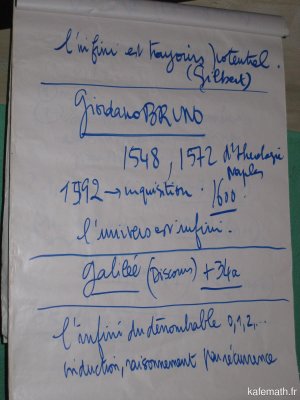 l'infini est toujours potentiel.
(Gilbert)
Giordano BRUNO
1548, 1572 d'théologie
Naples
1992 → inquisition. 1600
l'univers est infini.
Galilée (Discours) + 34a
l'infini du dénombable 0,1,2,...
induction, raisonnement par récurrence
kafemath.fr